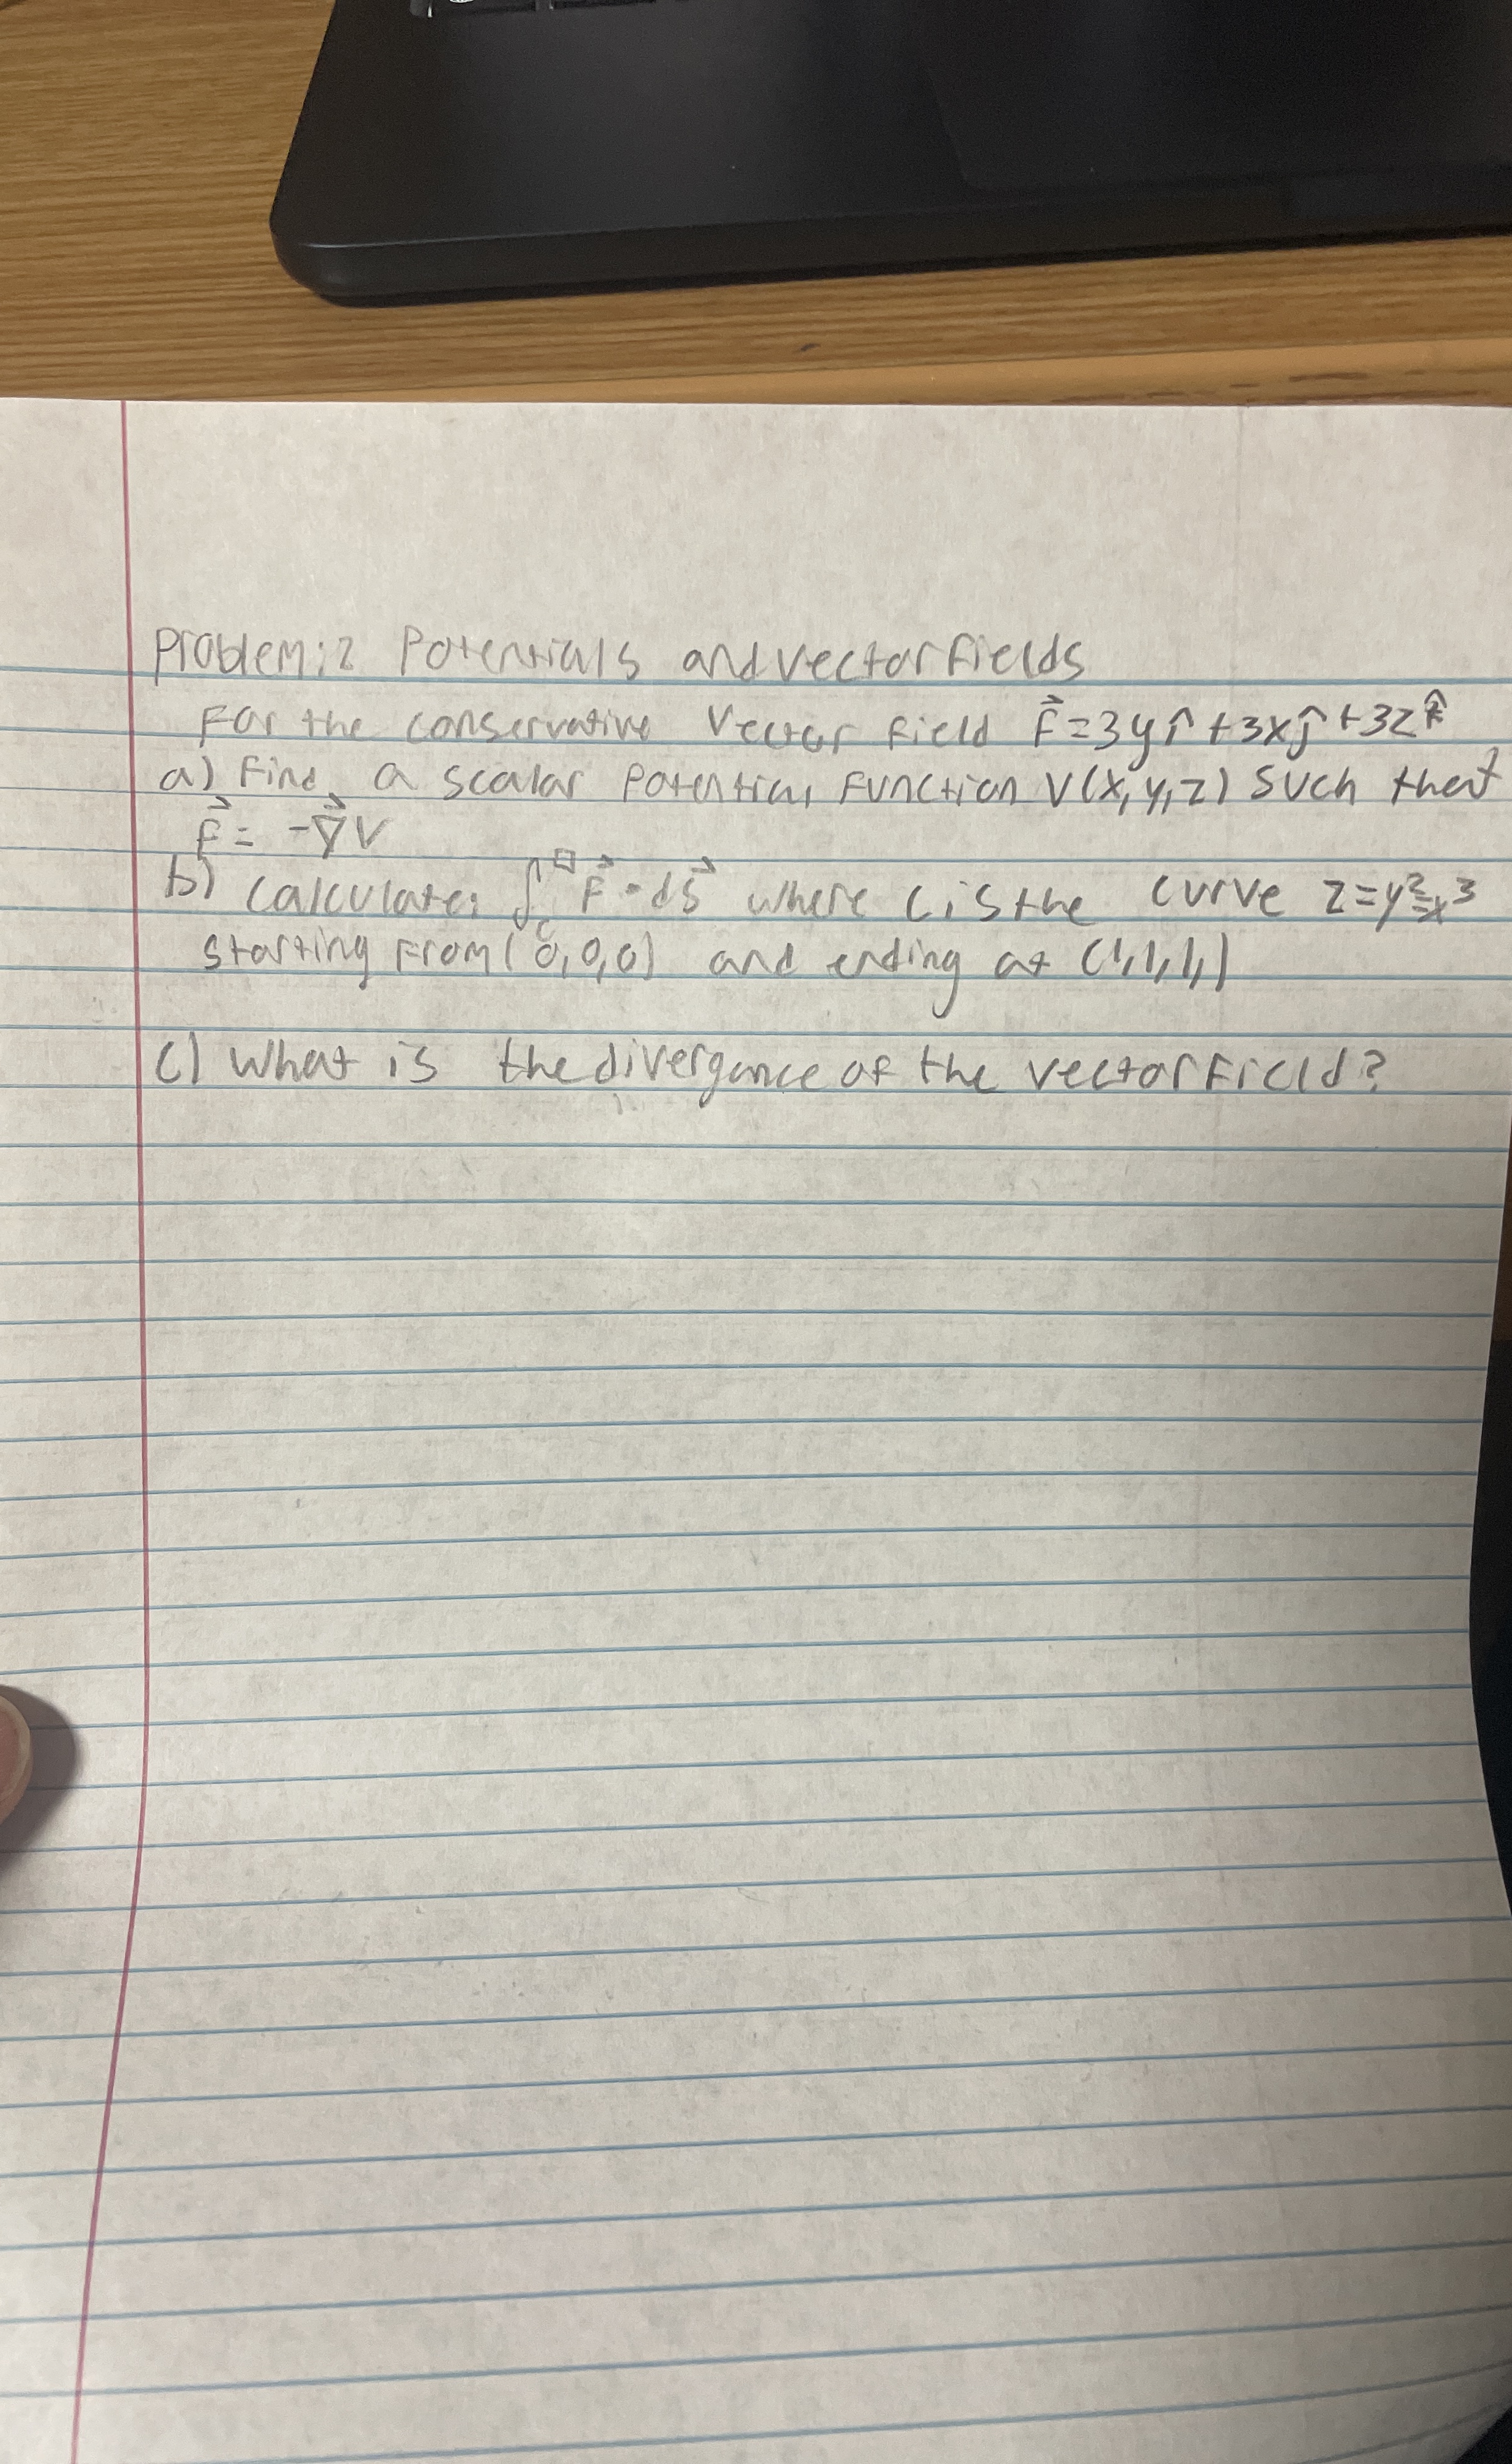 Problem: 2 Potentials and vector fields
For the conservative vector field F⃗=3yî+3xĵ+3zk̂
a) Find a scalar Potential Function V(x,y,z) such that
F⃗= -∇⃗V
b) Calculate: ∫_C^□ F⃗·ds⃗ where C is the curve z=y²=x³
starting from (0,0,0) and ending at (1,1,1,)
c) What is the divergance of the vector Field?